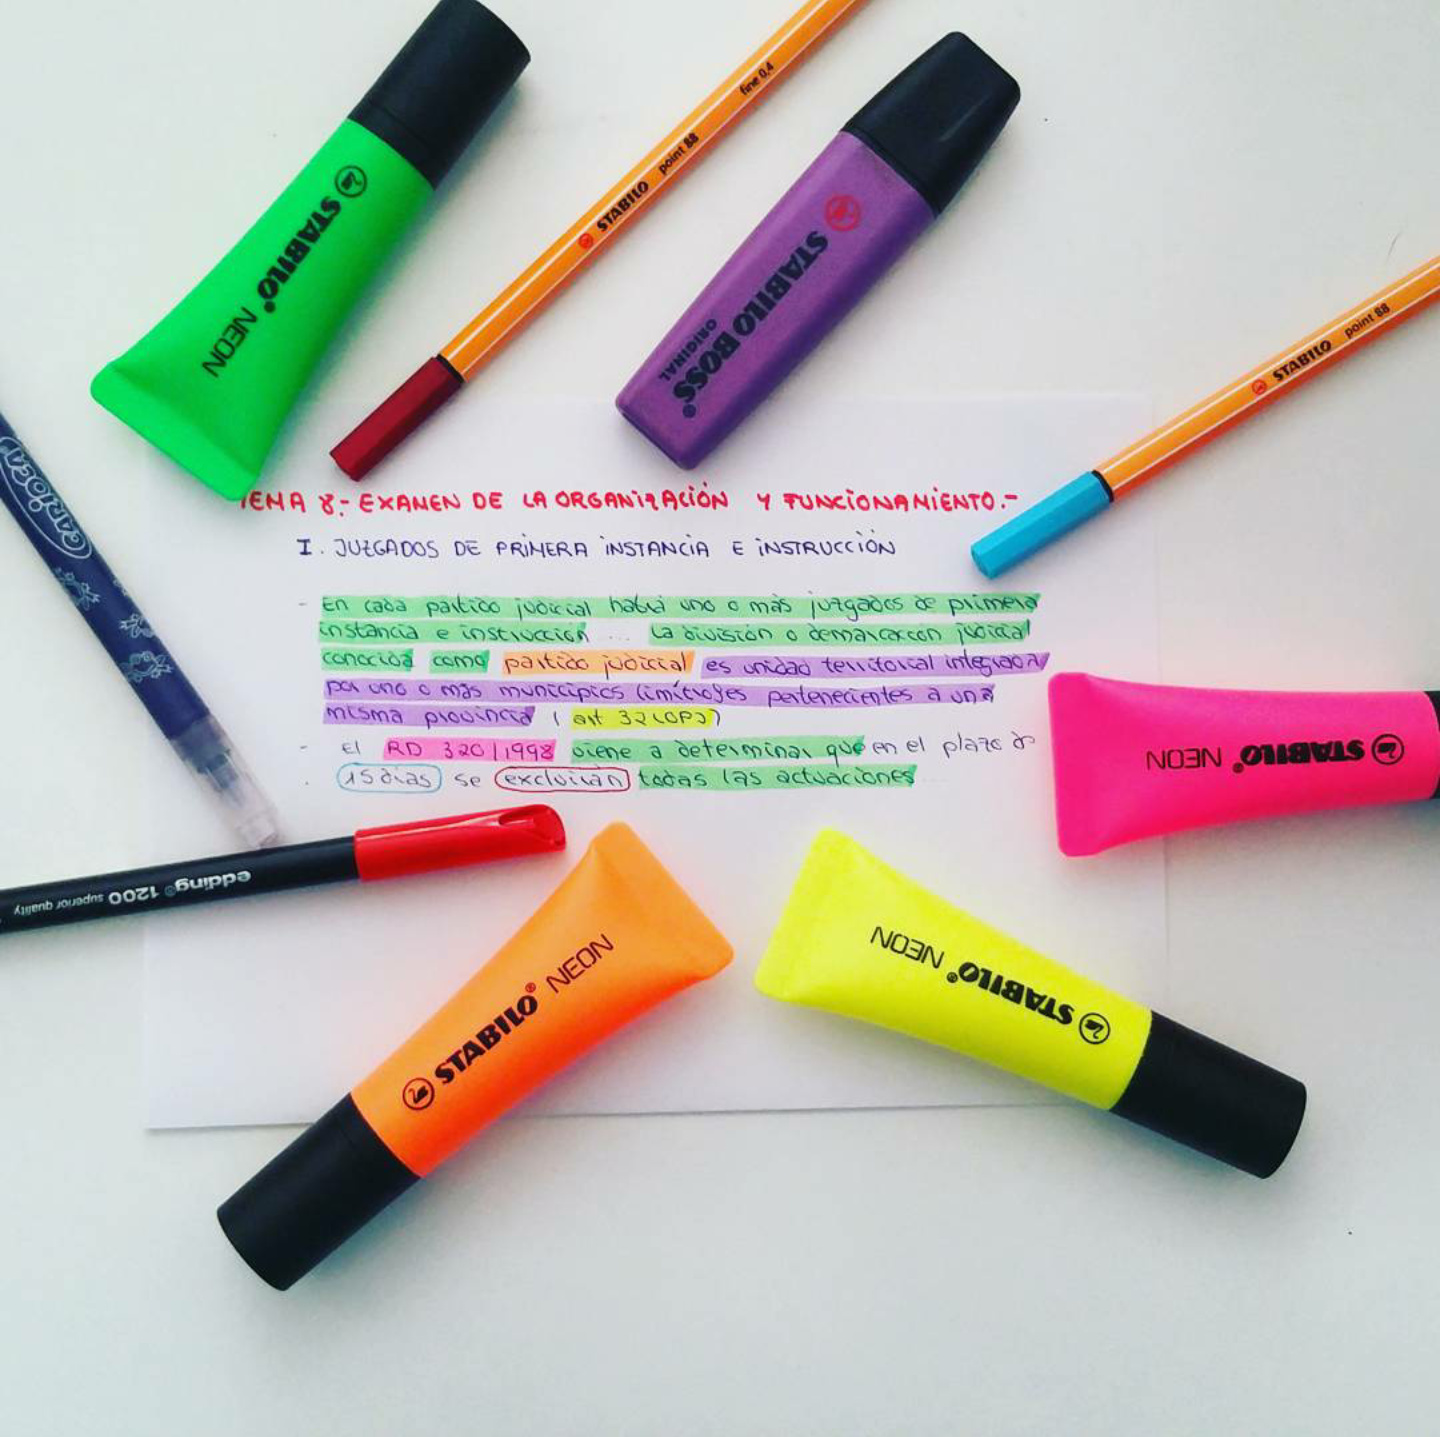 STABILO® NEON
STABILO point 88 fine 0,4
STABILO BOSS®
ORIGINAL
STABILO point 88
CARIOCA®
TEMA 8.- EXAMEN DE LA ORGANIZACIÓN Y FUNCIONAMIENTO.-
I. JUZGADOS DE PRIMERA INSTANCIA E INSTRUCCIÓN
- En cada partido judicial habrá uno o más juzgados de primera
instancia e instrucción ... La división o demarcación judicial
conocida como partido judicial es unidad territorial integrada
por uno o más municipios limítrofes pertenecientes a una
misma provincia (art 32 LOPJ)
- El RD 320/1998 viene a determinar que en el plazo de
15 días se excluirán todas las actuaciones
STABILO® NEON
edding® 1200 superior quality
STABILO® NEON
STABILO® NEON